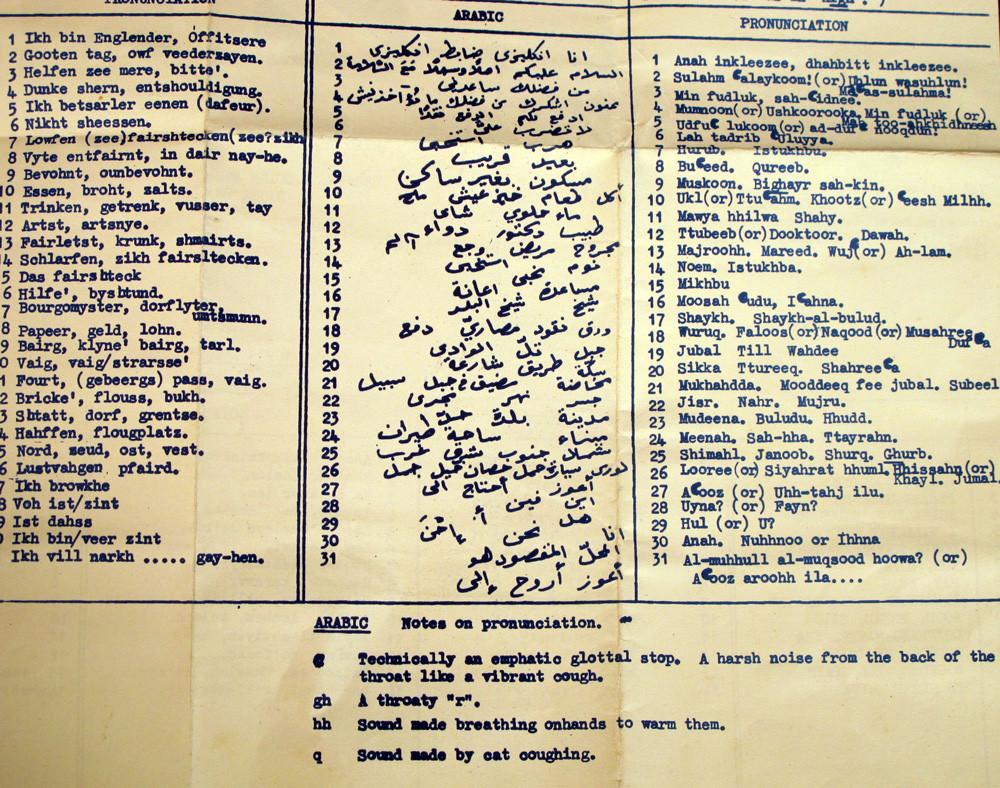 PRONUNCIATION
1 Ikh bin Englender, offitsere
2 Gooten tag, owf veederzayen.
3 Helfen zee mere, bitte'.
4 Dunke shern, entshouldigung.
5 Ikh betsarler eenen (dafeur).
6 Nikht sheessen.
7 Lowfen (zee)fairshtecken(zee?zikh
8 Vyte entfairnt, in dair nay-he.
9 Bevohnt, ounbevohnt.
10 Essen, broht, zalts.
11 Trinken, getrenk, vusser, tay
12 Artst, artsnye.
13 Fairletst, krunk, shmairts.
4 Schlarfen, zikh fairsltecken.
5 Das fairshteck
6 Hilfe', byshtund.
7 Bourgomyster, dorflyter,
umtsmunn.
8 Papeer, geld, lohn.
9 Bairg, klyne' bairg, tarl.
0 Vaig, vaig/strarsse'
1 Fourt, (gebeergs) pass, vaig.
2 Bricke', flouss, bukh.
3 Shtatt, dorf, grentse.
4 Hahffen, flougplatz.
5 Nord, zeud, ost, vest.
6 Lustvahgen pfaird.
7 Ikh browkhe
8 Voh ist/zint
9 Ist dahss
0 Ikh bin/veer zint
Ikh vill narkh ..... gay-hen.
ARABIC
1 انا انكليزى ضابط انكليزى
2 السلام عليكم اهلا وسهلا مع السلامة
3 من فضلك ساعدنى
4 ممنون اشكرك من فضلك
5 ادفع لكم
6 لا تضرب على
7 هرب استخبى
8 بعيد قريب
9 مسكون بغير ساكن
10 أكل طعام خبز عيش ملح
11 ماء حلوى شاى
12 طبيب دكتور دواء
13 مجروح مريض وجع
14 نوم استخبى
15 مخبى
16 مساعدة اعانة
17 شيخ شيخ البلد
18 ورق نقود مصارى دفع
19 جبل تل الوادى
20 سكة طريق شارعة
21 مخاضة مضيق فى جبل سبيل
22 جسر نهر مجرى
23 مدينة بلدة حد
24 ميناء ساحة طيران
25 شمال جنوب شرق غرب
26 لورى سيارة حمل حصان خيل جمل
27 أعوز أحتاج الى
28 اين فين
29 هل أ
30 انا نحن إحنا
31 المحل المقصود هو
أعوز أروح إلى
PRONUNCIATION
1 Anah inkleezee, dhahbitt inkleezee.
2 Sulahm Calaykoom!(or)Uhlun wasuhlun!
MaCas-sulahma!
3 Min fudluk, sah-Cidnee.
4 Mumnoon(or)Ushkoorooka.Min fudluk (or)
Mah too-ahkhidhneesh
5 UdfuC lukoom(or) ad-dufC nooqdun!
6 Lah tadrib Culuyya.
7 Hurub. Istukhbu.
8 BuCeed. Qureeb.
9 Muskoon. Bighayr sah-kin.
10 Ukl(or)TtuCahm. Khootz(or)Ceesh Milhh.
11 Mawya hhilwa Shahy.
12 Ttubeeb(or)Dooktoor. Dawah.
13 Majroohh. Mareed. WujC(or) Ah-lam.
14 Noem. Istukhba.
15 Mikhbu
16 Moosah Cudu, ICahna.
17 Shaykh. Shaykh-al-bulud.
18 Wuruq. Faloos(or)Naqood(or)Musahree
DufCa
19 Jubal Till Wahdee
20 Sikka Ttureeq. ShahreeCa
21 Mukhahdda. Mooddeeq fee jubal. Subeel
22 Jisr. Nahr. Mujru.
23 Mudeena. Buludu. Hhudd.
24 Meenah. Sah-hha. Ttayrahn.
25 Shimahl. Janoob. Shurq. Ghurb.
26 Looree(or)Siyahrat hhuml.Hhissahn(or)
Khayl. Jumal.
27 ACooz (or) Uhh-tahj ilu.
28 Uyna? (or) Fayn?
29 Hul (or) U?
30 Anah. Nuhhnoo or Ihhna
31 Al-muhhull al-muqsood hoowa? (or)
ACooz aroohh ila....
ARABIC Notes on pronunciation. -
C Technically an emphatic glottal stop. A harsh noise from the back of the
throat like a vibrant cough.
gh A throaty "r".
hh Sound made breathing onhands to warm them.
q Sound made by cat coughing.